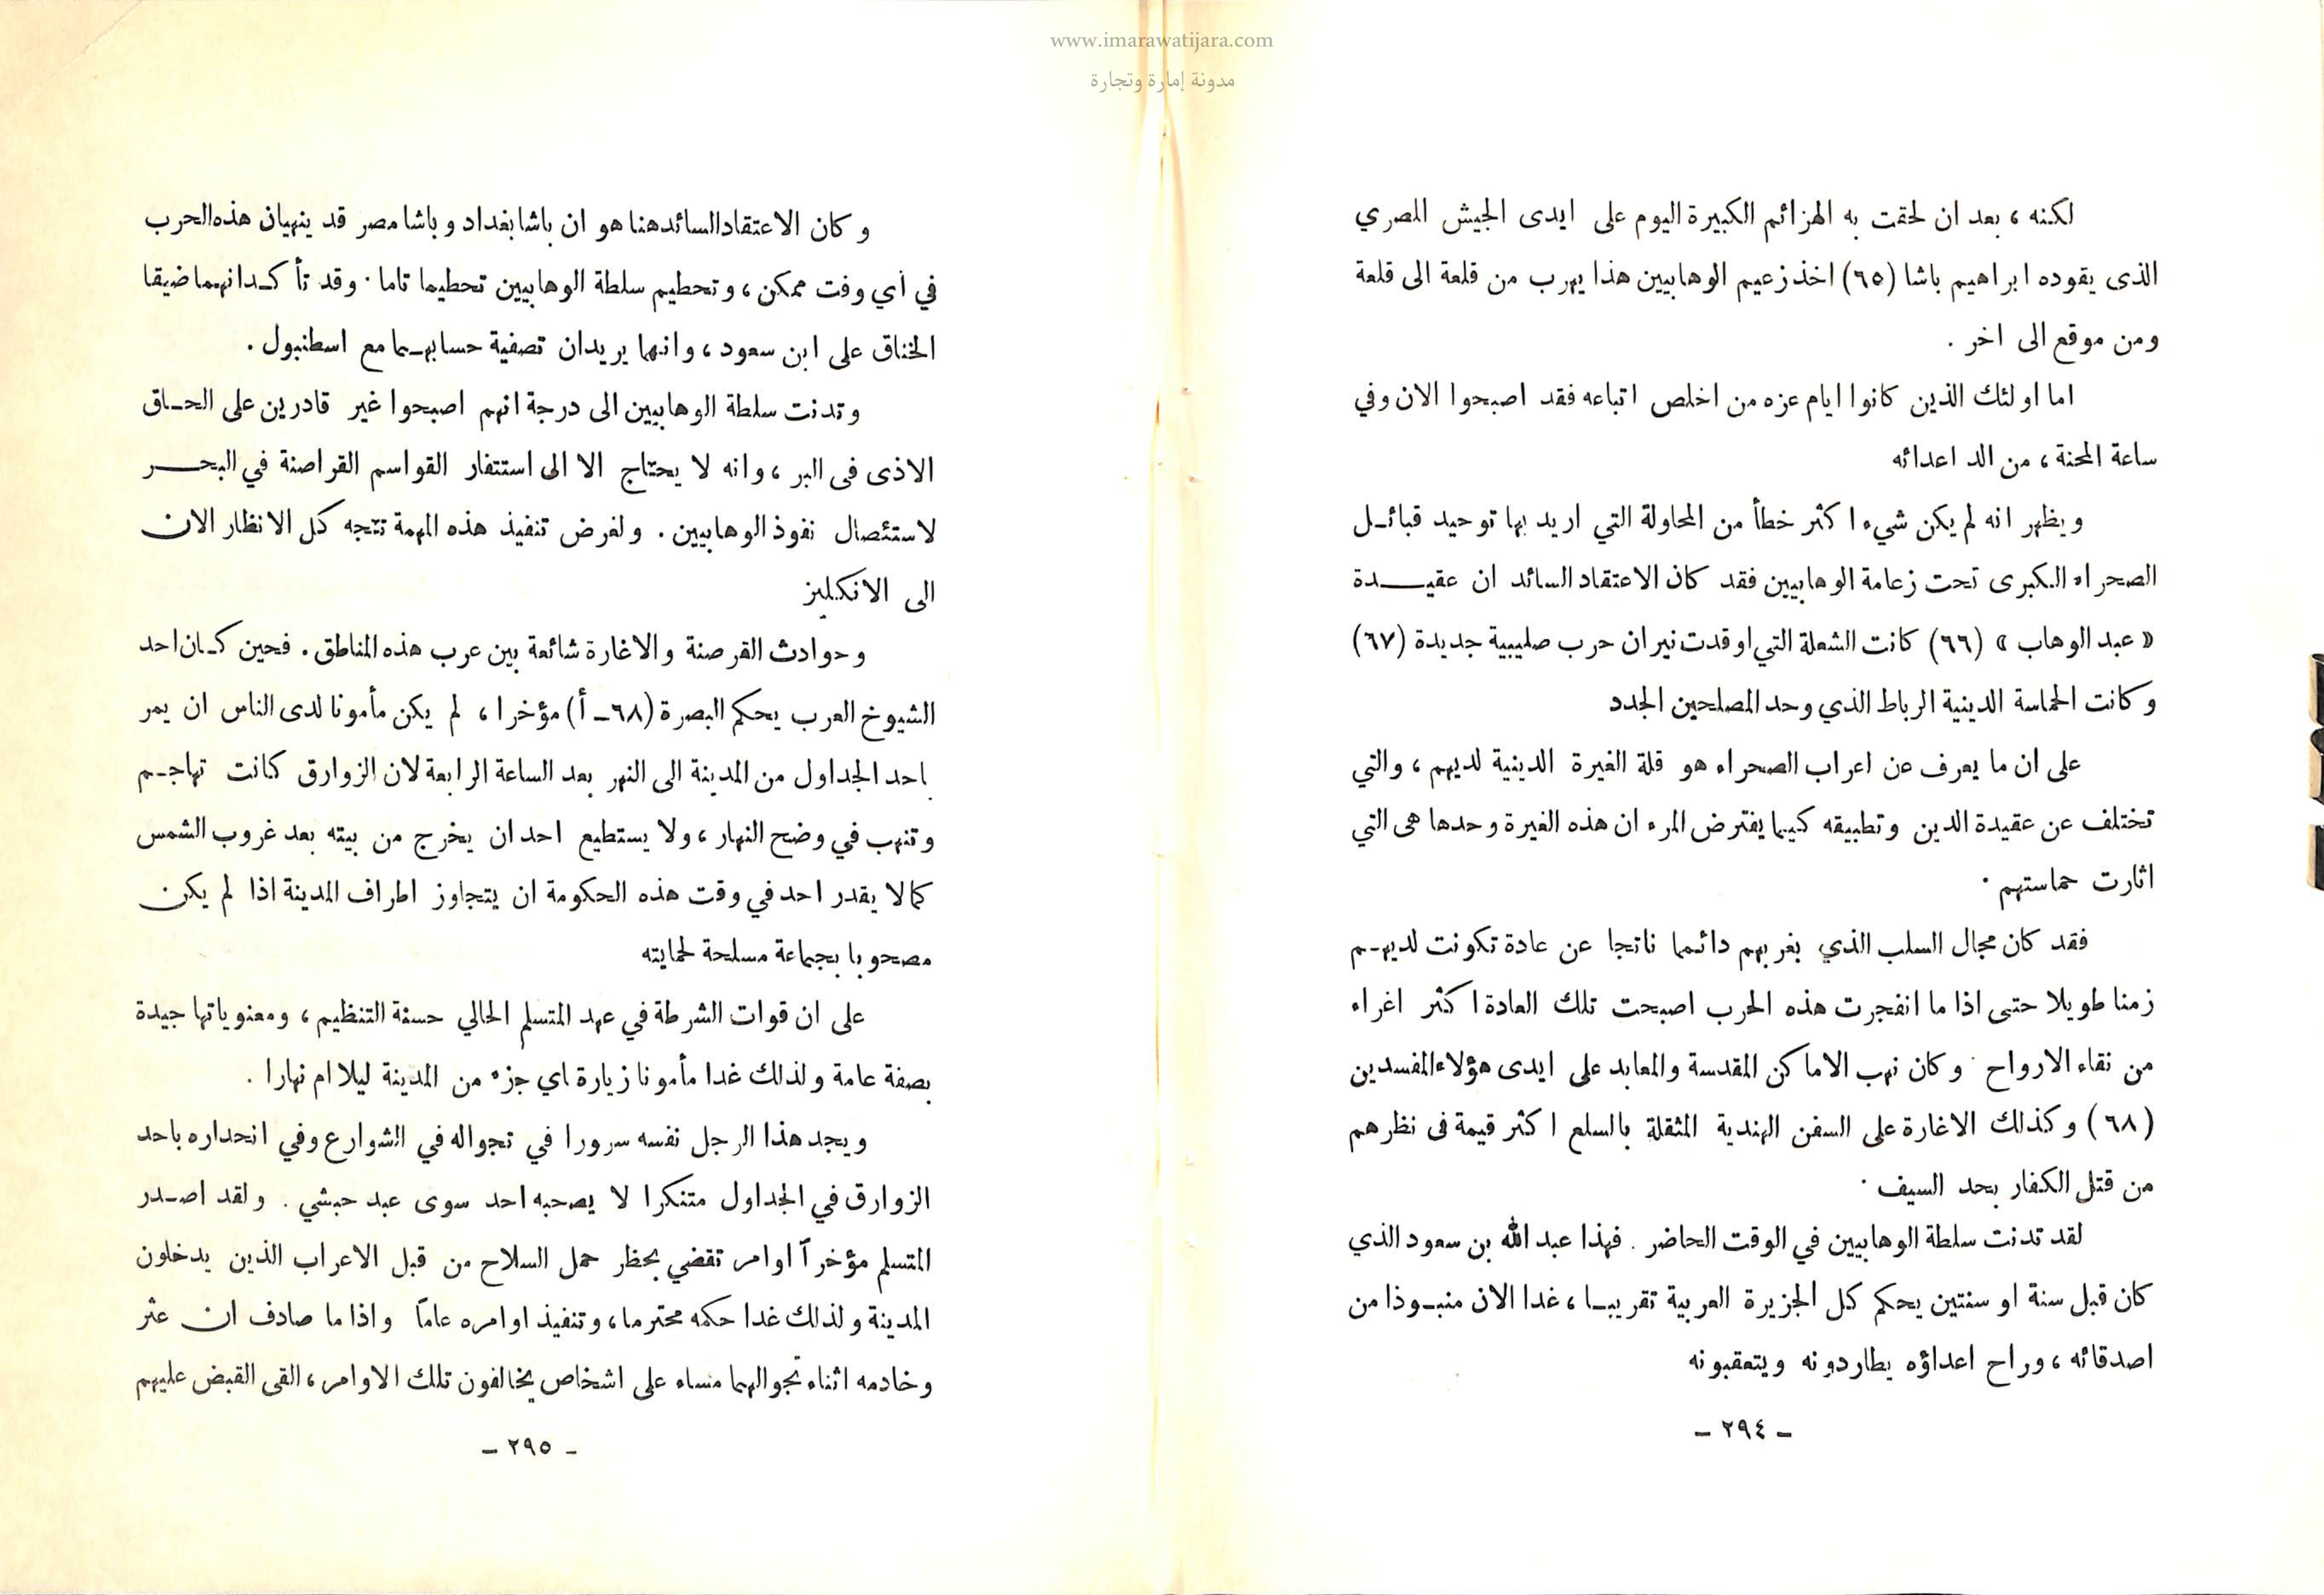 www.imarawatijara.com
مدونة إمارة وتجارة
لكنه ، بعد ان لحقت به الهزائم الكبيرة اليوم على ايدى الجيش المصري
الذى يقوده ابراهيم باشا (٦٥) اخذ زعيم الوهابيين هذا يهرب من قلعة الى قلعة
ومن موقع الى اخر .
اما اولئك الذين كانوا ايام عزه من اخلص اتباعه فقد اصبحوا الان وفي
ساعة المحنة ، من الد اعدائه
ويظهر انه لم يكن شيء اكثر خطأ من المحاولة التي اريد بها توحيد قبائـل
الصحراء الكبرى تحت زعامة الوهابيين فقد كان الاعتقاد السائد ان عقيـــدة
« عبد الوهاب » (٦٦) كانت الشعلة التي اوقدت نيران حرب صليبية جديدة (٦٧)
وكانت الحماسة الدينية الرباط الذي وحد المصلحين الجدد
على ان ما يعرف عن اعراب الصحراء هو قلة الغيرة الدينية لديهم ، والتي
تختلف عن عقيدة الدين وتطبيقه كيما يفترض المرء ان هذه الغيرة وحدها هى التي
اثارت حماستهم .
فقد كان مجال السلب الذي يغريهم دائما ناتجا عن عادة تكونت لديهـم
زمنا طويلا حتى اذا ما انفجرت هذه الحرب اصبحت تلك العادة اكثر اغراء
من نقاء الارواح . وكان نهب الاماكن المقدسة والمعابد على ايدى هؤلاء المفسدين
(٦٨) وكذلك الاغارة على السفن الهندية المثقلة بالسلع اكثر قيمة فى نظرهم
من قتل الكفار بحد السيف .
لقد تدنت سلطة الوهابيين في الوقت الحاضر . فهذا عبد الله بن سعود الذي
كان قبل سنة او سنتين يحكم كل الجزيرة العربية تقريبـا ، غدا الان منبـوذا من
اصدقائه ، وراح اعداؤه يطاردونه ويتعقبونه
ـ ٢٩٤ ـ
وكان الاعتقاد السائد هنا هو ان باشا بغداد وباشا مصر قد ينهيان هذه الحرب
في أي وقت ممكن ، وتحطيم سلطة الوهابيين تحطيما تاما . وقد تأكـد انهما ضيقا
الخناق على ابن سعود ، وانهما يريدان تصفية حسابهـما مع اسطنبول .
وتدنت سلطة الوهابيين الى درجة انهم اصبحوا غير قادرين على الحـاق
الاذى فى البر ، وانه لا يحتاج الا الى استنفار القواسم القراصنة في البحـــر
لاستئصال نفوذ الوهابيين . ولغرض تنفيذ هذه المهمة تتجه كل الانظار الان
الى الانكليز
وحوادث القرصنة والاغارة شائعة بين عرب هذه المناطق . فحين كـان احد
الشيوخ العرب يحكم البصرة (٦٨ـ أ) مؤخرا ، لم يكن مأمونا لدى الناس ان يمر
باحد الجداول من المدينة الى النهر بعد الساعة الرابعة لان الزوارق كانت تهاجـم
وتنهب في وضح النهار ، ولا يستطيع احد ان يخرج من بيته بعد غروب الشمس
كما لا يقدر احد في وقت هذه الحكومة ان يتجاوز اطراف المدينة اذا لم يكن
مصحوبا بجماعة مسلحة لحمايته
على ان قوات الشرطة في عهد المتسلم الحالي حسنة التنظيم ، ومعنوياتها جيدة
بصفة عامة ولذلك غدا مأمونا زيارة اي جزء من المدينة ليلا ام نهارا .
ويجد هذا الرجل نفسه سرورا في تجواله في الشوارع وفي انحداره باحد
الزوارق في الجداول متنكرا لا يصحبه احد سوى عبد حبشي . ولقد اصـدر
المتسلم مؤخرآ اوامر تقضي بحظر حمل السلاح من قبل الاعراب الذين يدخلون
المدينة ولذلك غدا حكمه محترما ، وتنفيذ اوامره عاماً واذا ما صادف ان عثر
وخادمه اثناء تجوالهما مساء على اشخاص يخالفون تلك الاوامر ، القى القبض عليهم
ـ ٢٩٥ ـ